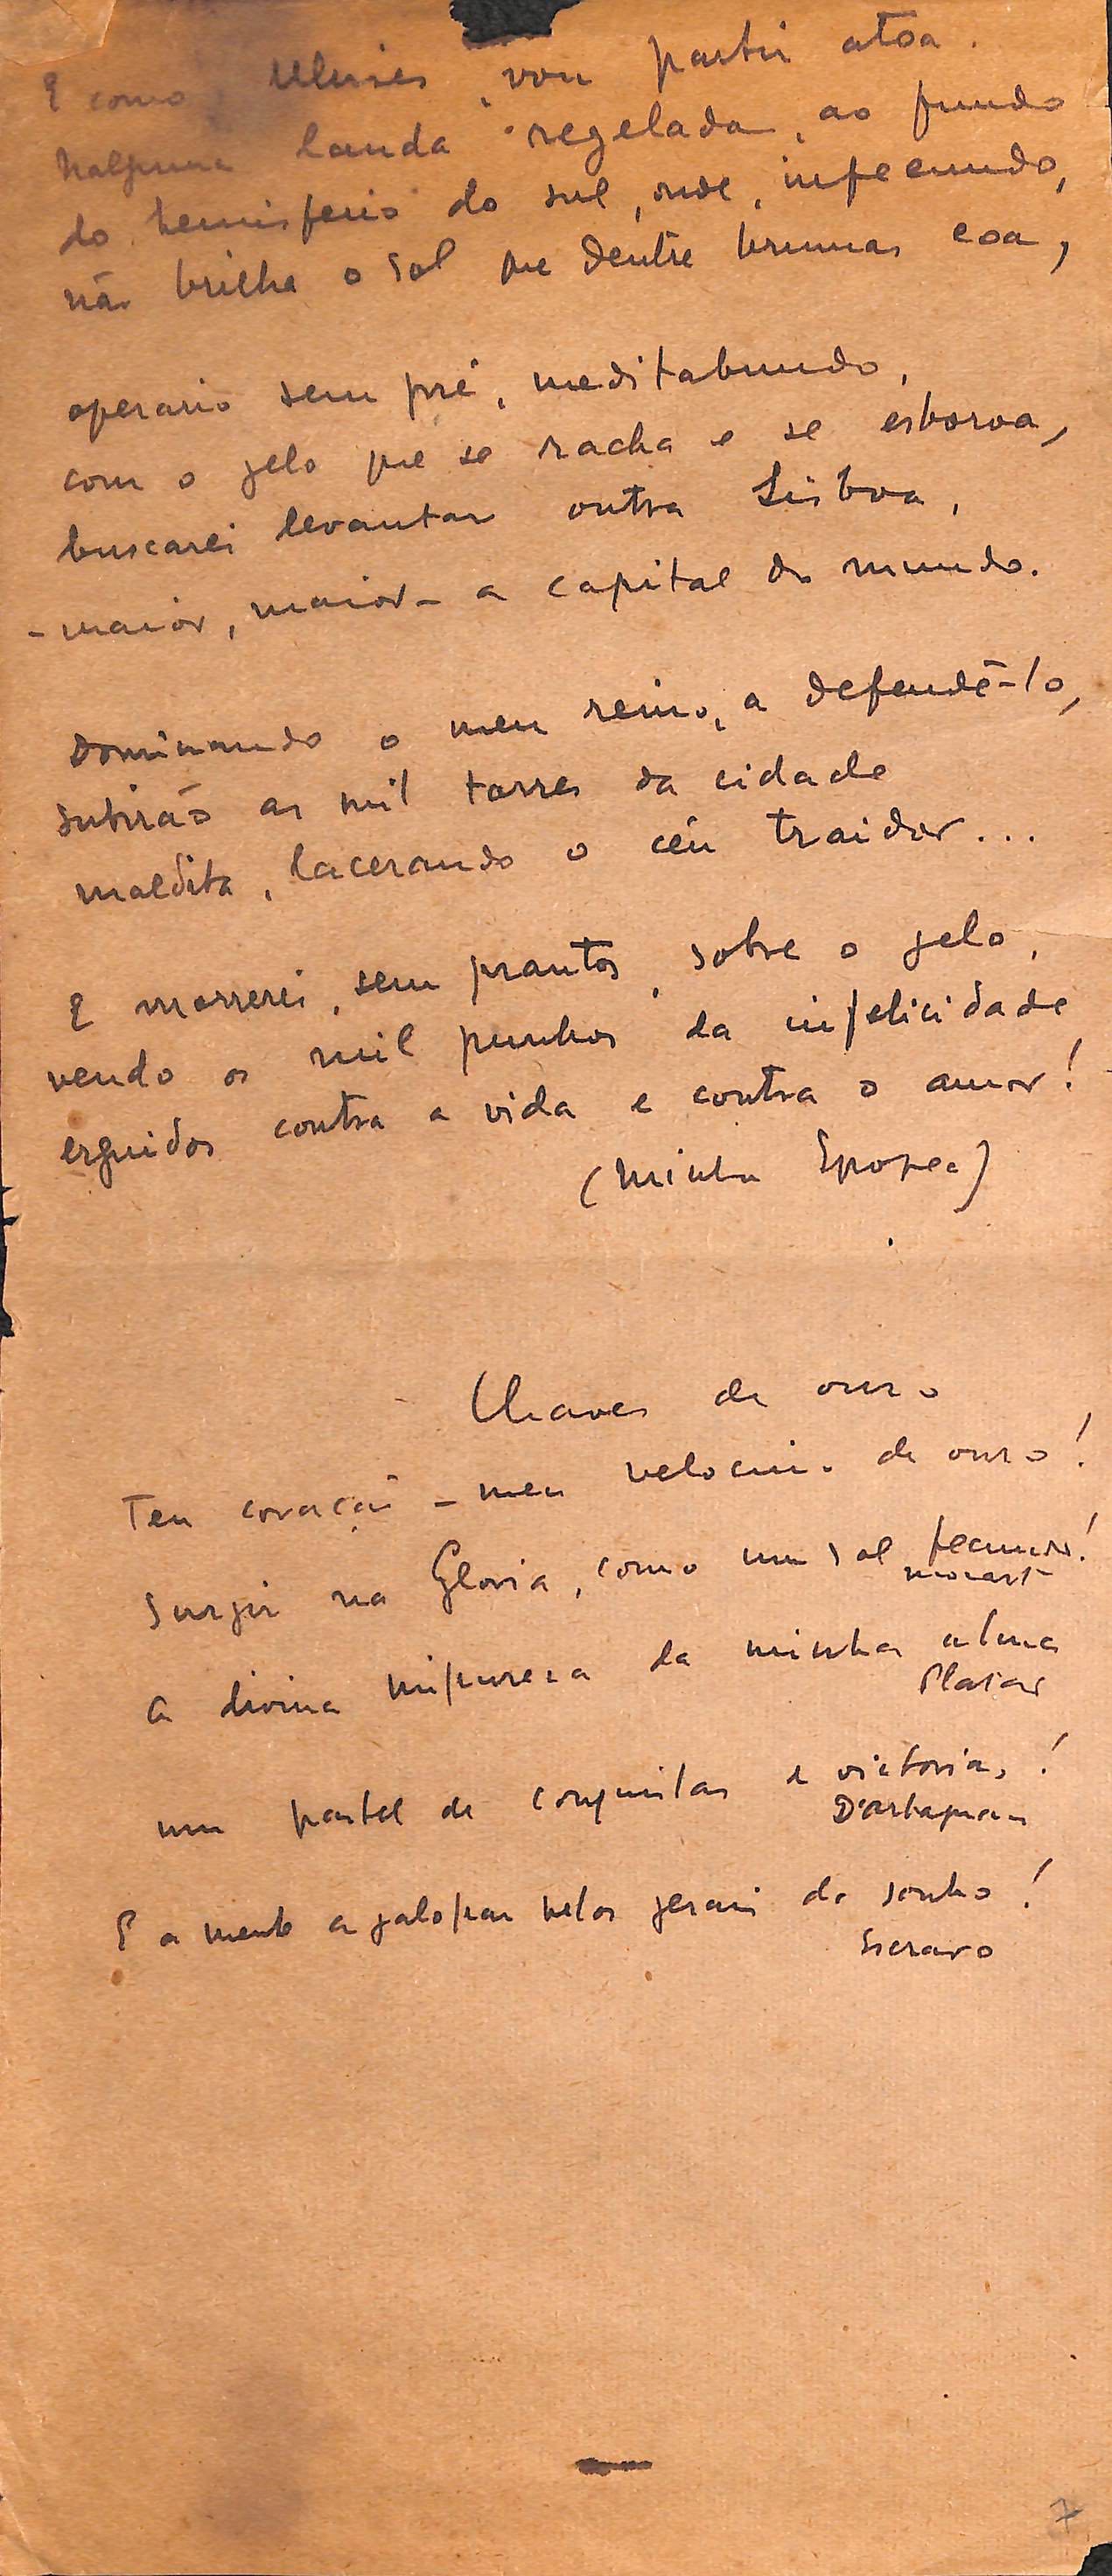 E como Ulisses, vou partir atôa.
Nalguma landa regelada, ao fundo
do hemisferio do sul, onde, infecundo,
não brilha o sol que dentre brumas coa,
operario sem pré, meditabundo,
com o gelo que se racha e se esboroa,
buscarei levantar outra Lisboa,
- maior, maior - a capital do mundo.
Dominando o meu reino, a defendê-lo,
subirão as mil torres da cidade
maldita, lacerando o céu traidor...
E morrerei, sem prantos, sobre o gelo,
vendo os mil punhos da infelicidade
erguidos contra a vida e contra o amor!
(Minha Epopea)
Chaves de ouro
Teu coração - meu velocino de ouro!
Surgir na Gloria, como um sol fecundo!
Mozart
A divina impureza da minha alma
Platão
um pastel de conquistas e victorias!
D'Artagnan
E a mente a galopar pelos gerais do sonho!
Escravo
7